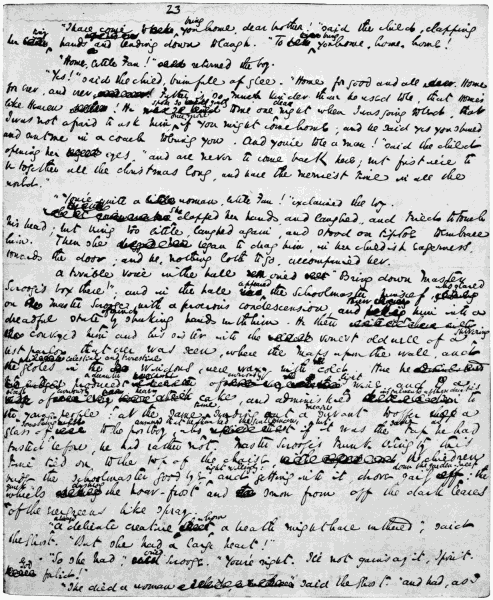 23
"I have come to bring you home, dear brother!" said the child, clapping
her tiny hands and bending down to laugh. "To bring you home, home, home!"
"Home, little Fan!" returned the boy.
"Yes!" said the child, brimful of glee. "Home for good and all. Home
for ever, and ever. Father is so much kinder than he used to be, that Home's
like Heaven! He spoke so gently to me one dear night when I was going to bed, that
I was not afraid to ask him once more if you might come home; and he said yes you should
and sent me in a coach to bring you. And you're to be a man!" said the child
opening her eyes, "and are never to come back here; but first we're to
be together all the Christmas long, and have the merriest time in all the
world."
"You're quite a woman, little Fan!" exclaimed the boy.
She clapped her hands and laughed, and tried to touch
his head; but being too little, laughed again, and stood on tiptoe to embrace
him. Then she began to drag him, in her childish eagerness,
towards the door; and he, nothing loth to go, accompanied her.
A terrible voice in the hall cried "Bring down Master
Scrooge's box, there!", and in the hall appeared the Schoolmaster himself who glared
on Master Scrooge with a ferocious condescension, and threw him into a
dreadful state of mind by shaking hands with him. He then
conveyed him and his sister into the veriest old well of a shivering
best parlor that ever was seen, where the maps upon the wall, and
the globes in the windows, were waxy with cold. Here he
produced a decanter of curiously light wine, and a block of curiously
heavy cake, and administered instalments of those dainties to
the young people: at the same time, sending out a meagre servant to offer a
glass of something to the postboy, who answered that he thanked the gentleman, but if it was the same tap he had
tasted before, he had rather not. Master Scrooge's trunk being by this
time tied on to the top of the chaise, the children
bade the schoolmaster good bye right willingly; and getting into it, drove gaily down the garden sweep: the
quick wheels dashing the hoar-frost and snow from off the dark leaves
of the evergreens like spray.
"Always a delicate creature, whom a breath might have withered," said
the Ghost. "But she had a large heart!"
"So she had," cried Scrooge. "You're right. I'll not gainsay it, Spirit.
God forbid!"
"She died a woman," said the Ghost, "and had, as I